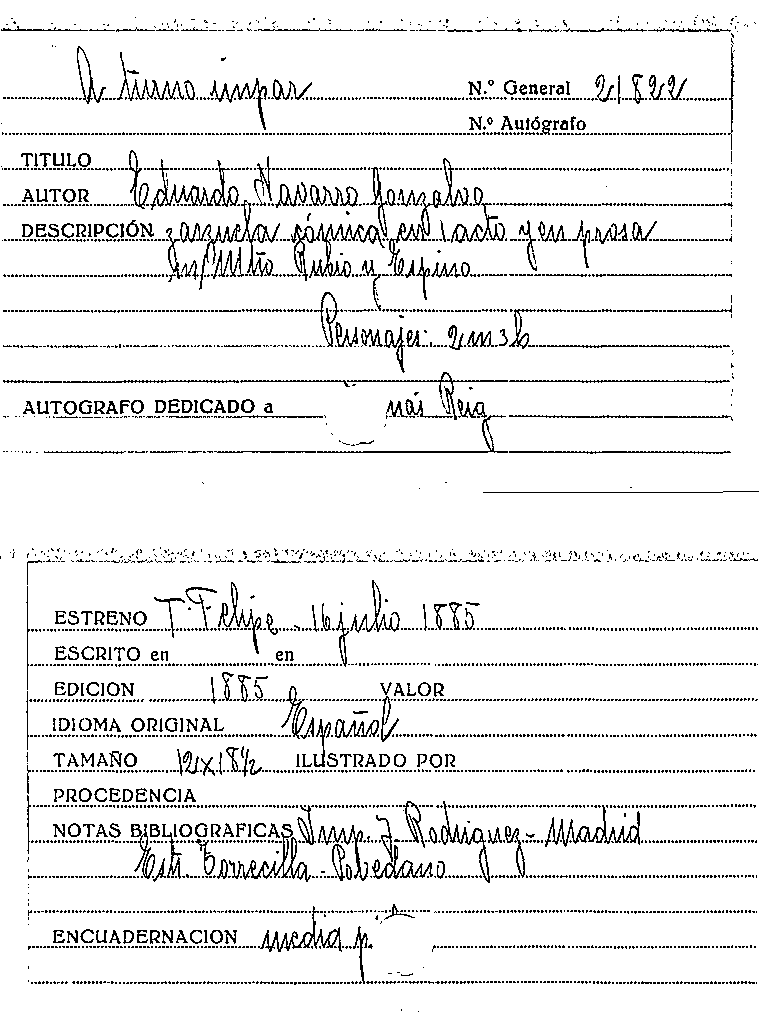 A turno impar
N.º General 21822
N.º Autógrafo
TITULO
AUTOR Eduardo Navarro Gonzalvo
DESCRIPCIÓN zarzuela cómica en 1 acto y en prosa
Mtro Rubio y Espino
Personajes: 2 m 3 h
AUTOGRAFO DEDICADO a nás Reig
ESTRENO T. Felipe - 16 julio 1885
ESCRITO en en
EDICION 1885 VALOR
IDIOMA ORIGINAL Español
TAMAÑO 12 x 18½ ILUSTRADO POR
PROCEDENCIA
NOTAS BIBLIOGRAFICAS Imp. J. Rodriguez - Madrid
Estr. Torrecilla - Pobedano
ENCUADERNACION media p.